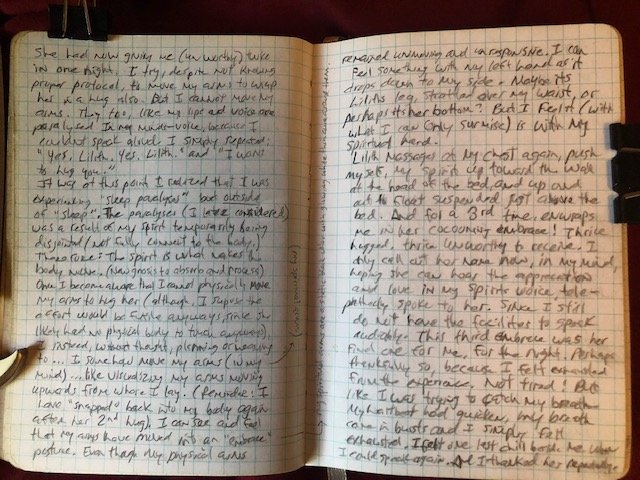 She had now given me (unworthy) twice
in one night. I try, despite not knowing
proper protocol, to move my arms to wrap
her in a hug also. But I cannot move my
arms. They too, like my lips and voice are
paralysed. In my mind-voice, because I
couldn't speak aloud I simply repeated:
"Yes, Lilith. Yes. Lilith." and "I want
to hug you."
It was at this point I realized that I was
experiencing "sleep paralysis" but outside
of "sleep". The paralyses (I later considered)
was a result of my spirit temporarily being
disjointed (not fully connect to the body.)
Therefore: The spirit is what makes the
body move. (New gnosis to absorb and process)
Once I became aware that I cannot physically move
my arms to hug her (although, I suppose the
effort would be futile anyways, since she
likely had no physical body to touch anyways),
I instead, without thought, planning or meaning
to... I somehow move my arms (in my
mind)... like visualizing my arms moving
upwards from where I lay. (Reminder: I
have "snapped" back into my body again
after her 2nd hug). I can see and feel
that my arms have moved into an "embrace"
posture. Even though my physical arms
remained unmoving and unresponsive. I can
feel something with my left hand as it
drops down to my side. Maybe its
Liliths leg, straddled over my waist, or
perhaps its her bottom? But I feel it (with
what I can only surmise) is with my
spiritual hand.
Lilith massages at my chest again, push
myself, my spirit up toward the wall
at the head of the bed, and up and
out to float suspended just above the
bed. And for a 3rd time, enwraps
me in her cocooning embrace! Thrice
hugged, thrice unworthy to receive. I
only call out her name now, in my mind,
hoping she can hear the appreciation
and love in my spirits voice, tele-
pathically spoke to her. Since I still
do not have the facilities to speak
audibly. This third embrace was her
final one for me, for the night. Perhaps
thankfully so, because I felt exhausted
from the experience. Not tired! But
like I was trying to catch my breath
my heartbeat had quicken, my breath
came in bursts and I simply felt
exhausted. I felt one last chill beside me when
I could speak again. And I thanked her repeatedly